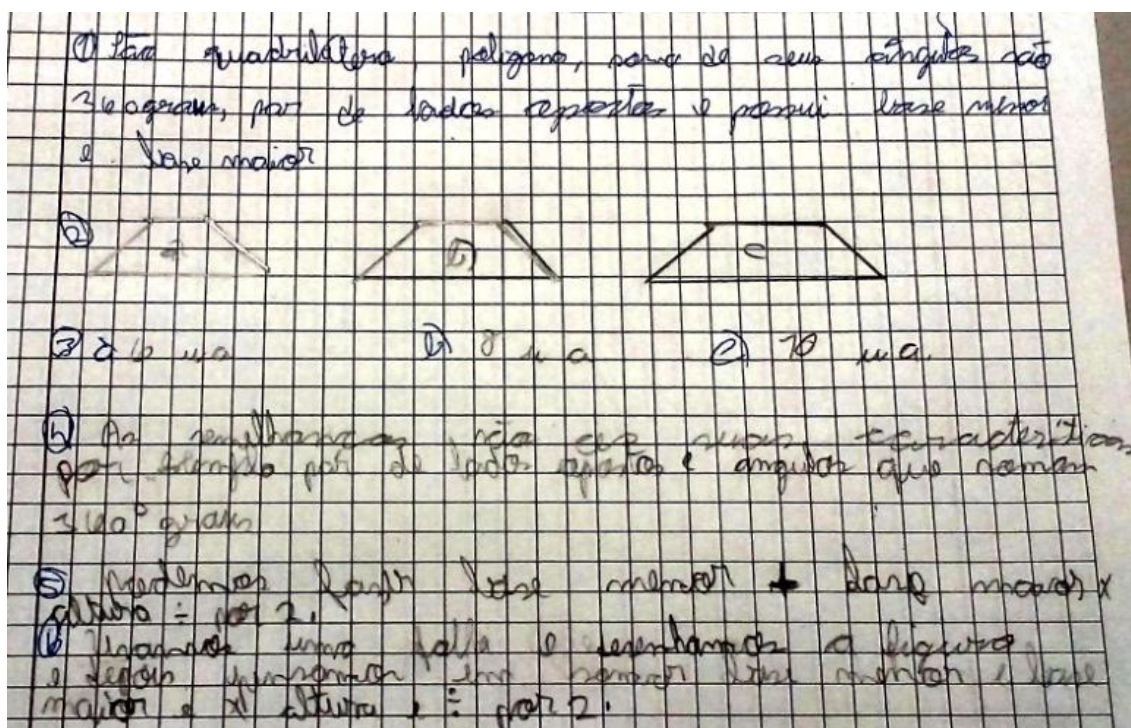 ① São quadrilátero, poligono, soma de seus ângulos são
360 graus, par de lados opostos e possui base menor
e base maior
② a b c
③ a 6 u a b) 8 u a c) 10 u a.
④ As semelhanças são as suas características
por exemplo par de lados opostos e angulos que somam
360° graus
⑤ Podemos fazer base menor + base maior x
altura ÷ por 2.
⑥ Usamos uma folha e desenhamos a figura
e depois pensamos em somar base menor e base
maior e x altura e ÷ por 2.